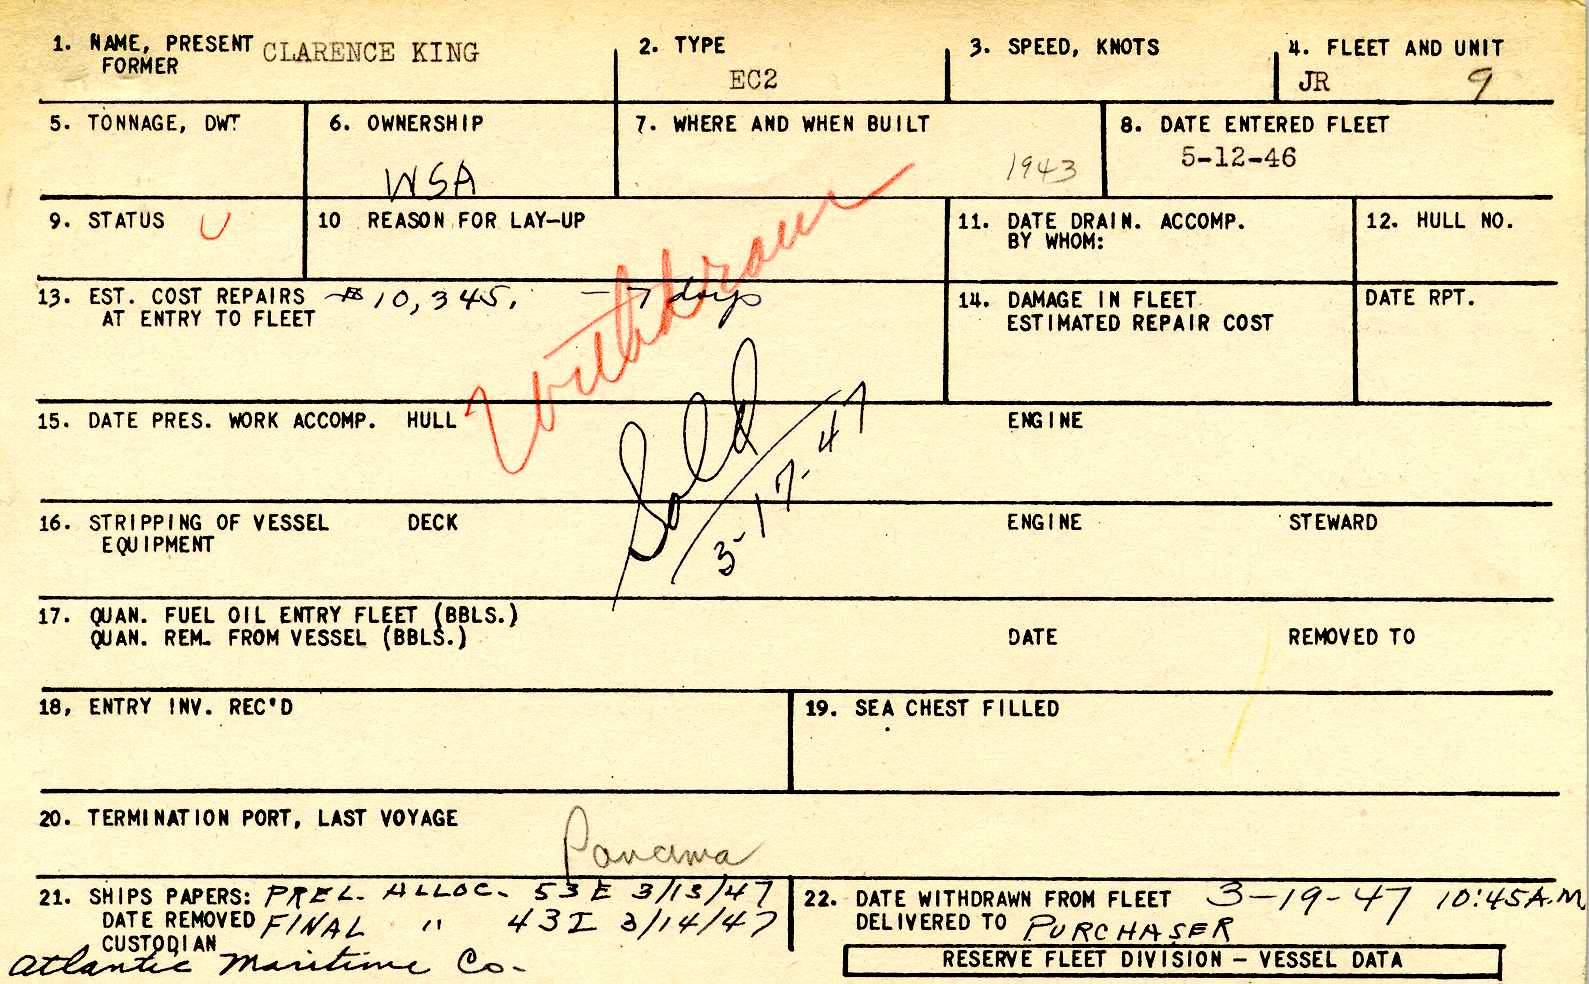 1. NAME, PRESENT CLARENCE KING
FORMER
2. TYPE
EC2
3. SPEED, KNOTS
4. FLEET AND UNIT
JR 9
5. TONNAGE, DWT
6. OWNERSHIP
WSA
7. WHERE AND WHEN BUILT
1943
8. DATE ENTERED FLEET
5-12-46
9. STATUS U
10 REASON FOR LAY-UP
11. DATE DRAIN. ACCOMP.
BY WHOM:
12. HULL NO.
13. EST. COST REPAIRS $10,345. - 7 days
AT ENTRY TO FLEET
Withdrawn
14. DAMAGE IN FLEET
ESTIMATED REPAIR COST
DATE RPT.
15. DATE PRES. WORK ACCOMP. HULL ENGINE
Sold
3-17-47
16. STRIPPING OF VESSEL DECK ENGINE STEWARD
EQUIPMENT
17. QUAN. FUEL OIL ENTRY FLEET (BBLS.)
QUAN. REM. FROM VESSEL (BBLS.) DATE REMOVED TO
18, ENTRY INV. REC'D
19. SEA CHEST FILLED
20. TERMINATION PORT, LAST VOYAGE
Panama
21. SHIPS PAPERS: PREL. ALLOC. 53E 3/13/47
DATE REMOVED FINAL " 43I 3/14/47
CUSTODIAN
Atlantic Maritime Co.
22. DATE WITHDRAWN FROM FLEET 3-19-47 10:45A.M
DELIVERED TO PURCHASER
RESERVE FLEET DIVISION - VESSEL DATA